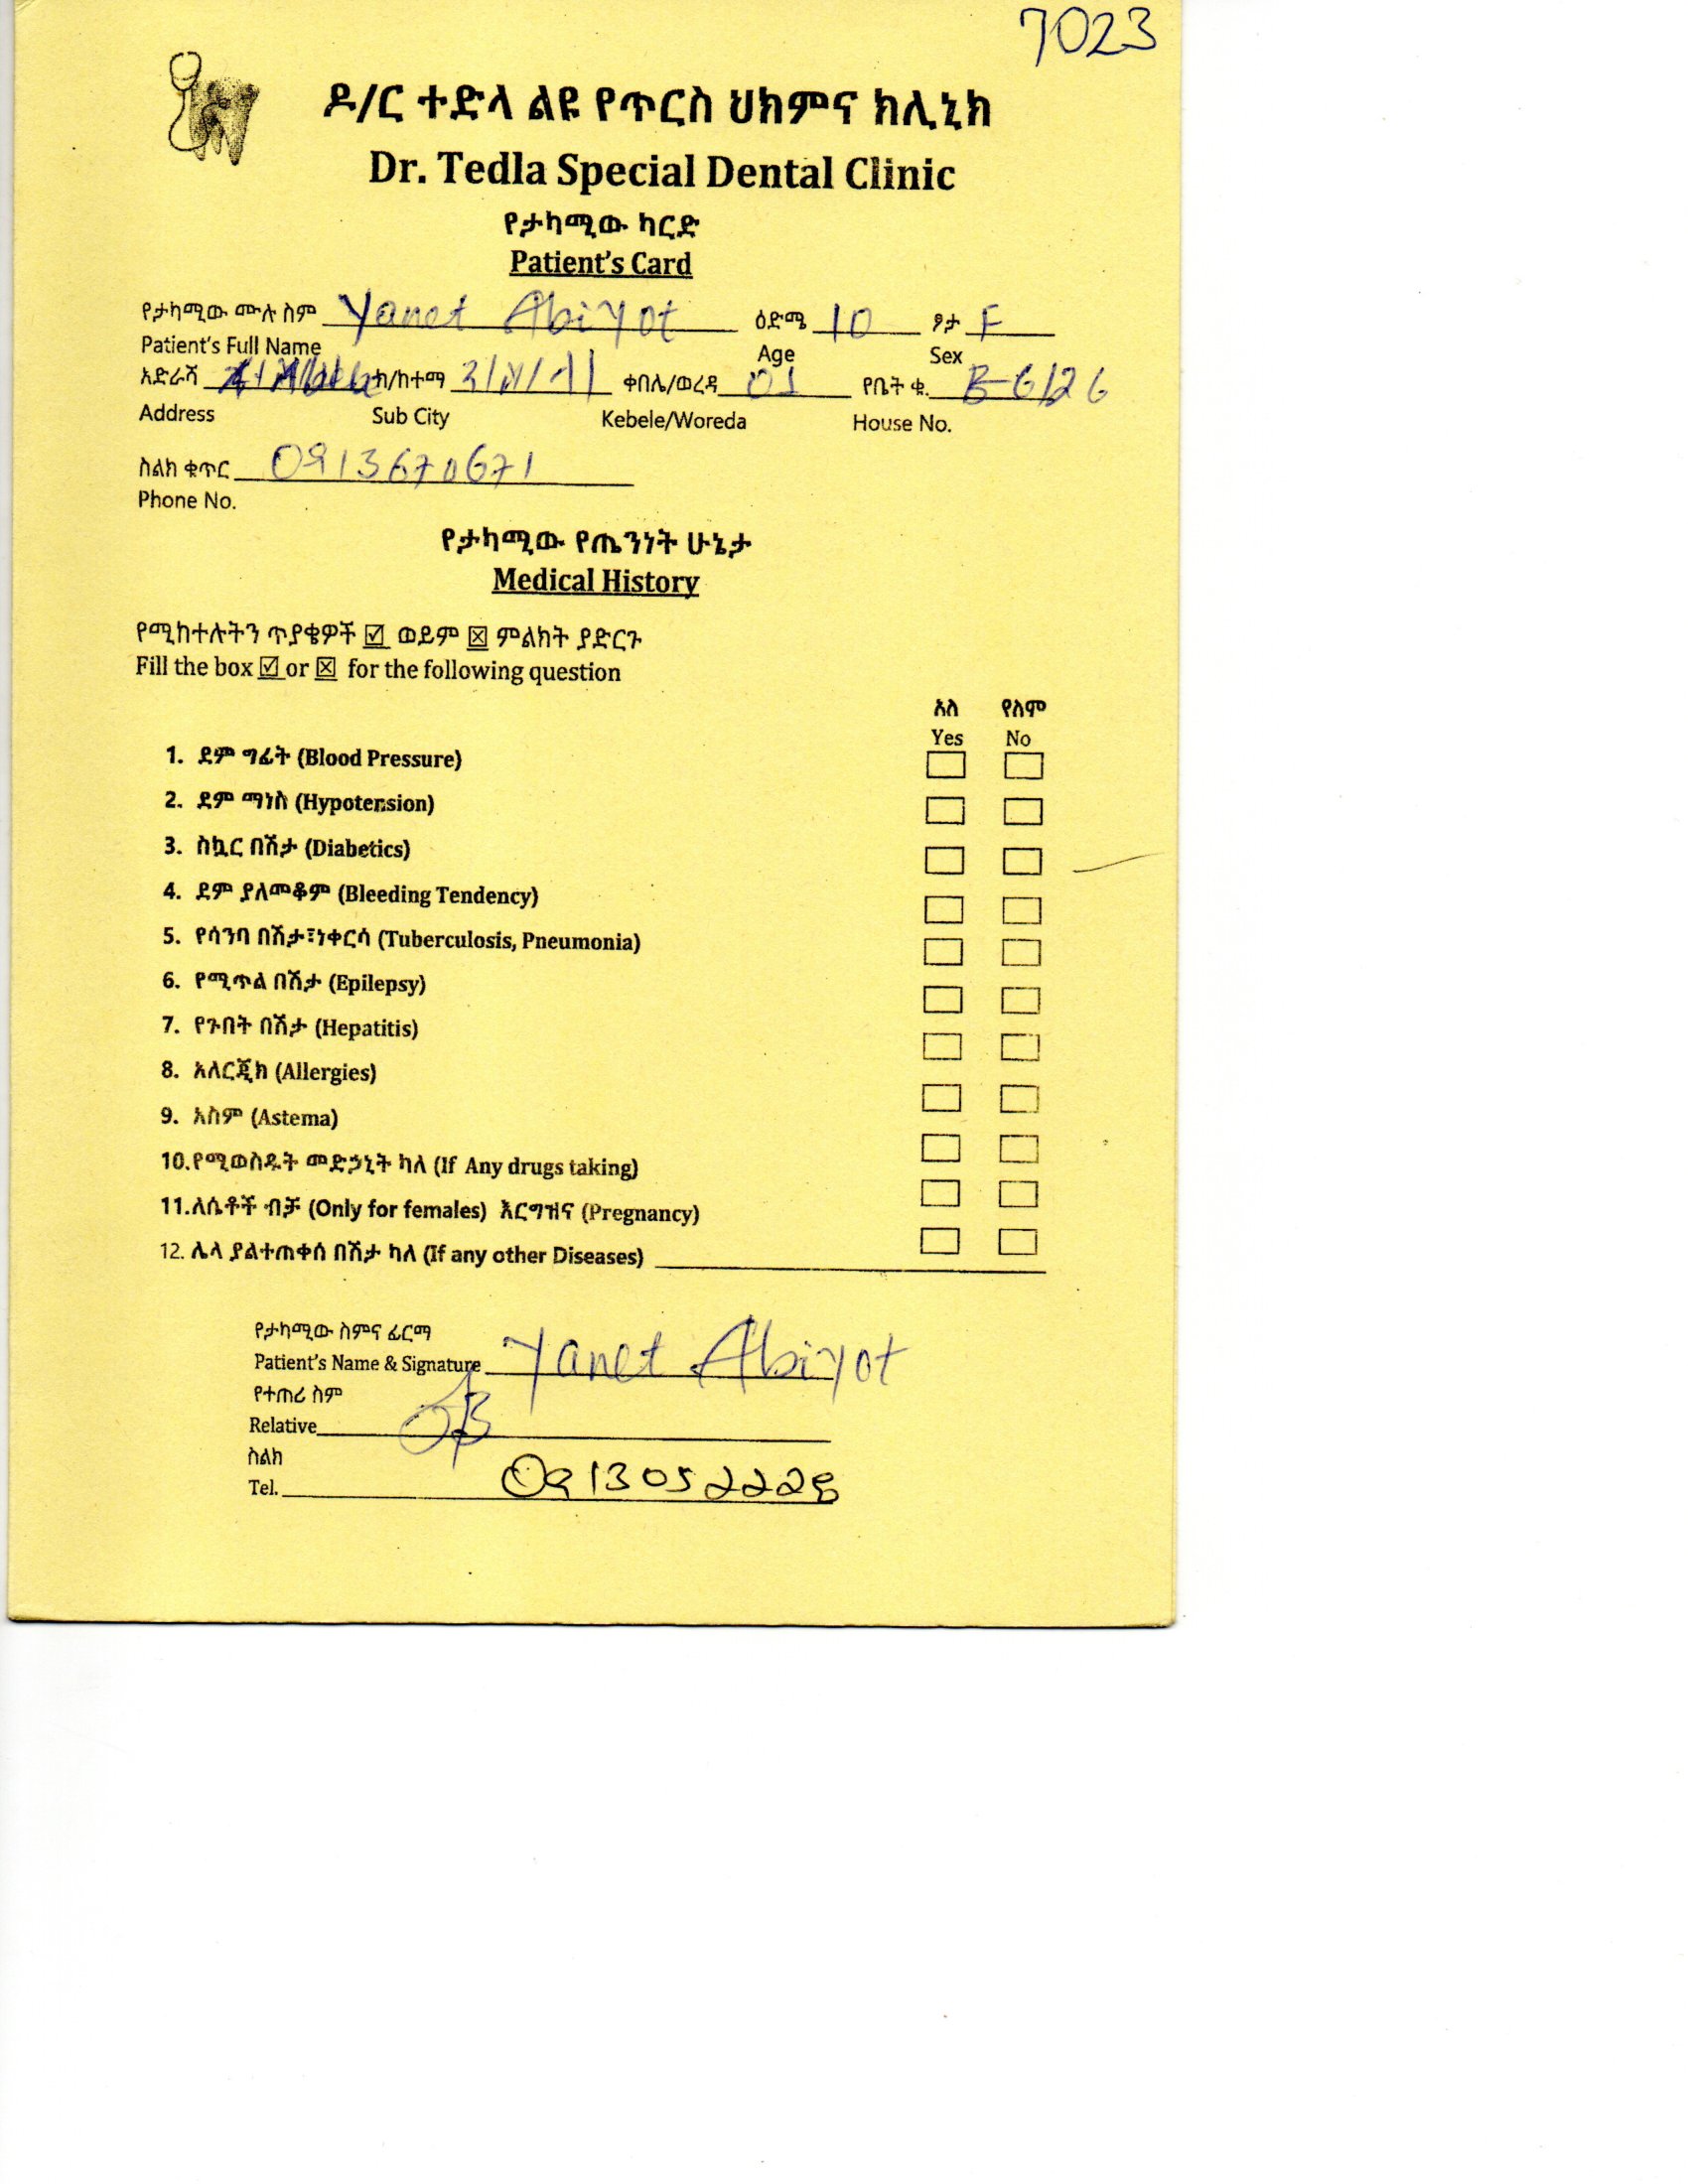 7023
ዶ/ር ተድላ ልዩ የጥርስ ህክምና ክሊኒክ
Dr. Tedla Special Dental Clinic
የታካሚው ካርድ
Patient's Card
የታካሚው ሙሉ ስም Yanet Abiyot ዕድሜ 10 ፆታ F
Patient's Full Name Age Sex
አድራሻ ክ/ከተማ ቀበሌ/ወረዳ 01 የቤት ቁ. B-6/26
Address Sub City Kebele/Woreda House No.
ስልክ ቁጥር 0913670671
Phone No.
የታካሚው የጤንነት ሁኔታ
Medical History
የሚከተሉትን ጥያቄዎች ☑ ወይም ☒ ምልክት ያድርጉ
Fill the box ☑ or ☒ for the following question
አለ የለም
Yes No
1. ደም ግፊት (Blood Pressure)
2. ደም ማነስ (Hypotension)
3. ስኳር በሽታ (Diabetics)
4. ደም ያለመቆም (Bleeding Tendency)
5. የሳንባ በሽታ፣ነቀርሳ (Tuberculosis, Pneumonia)
6. የሚጥል በሽታ (Epilepsy)
7. የጉበት በሽታ (Hepatitis)
8. አለርጂክ (Allergies)
9. አስም (Astema)
10.የሚወስዱት መድኃኒት ካለ (If Any drugs taking)
11.ለሴቶች ብቻ (Only for females) እርግዝና (Pregnancy)
12. ሌላ ያልተጠቀሰ በሽታ ካለ (If any other Diseases)
የታካሚው ስምና ፊርማ
Patient's Name & Signature Yanet Abiyot
የተጠሪ ስም
Relative
ስልክ
Tel. 0913052228